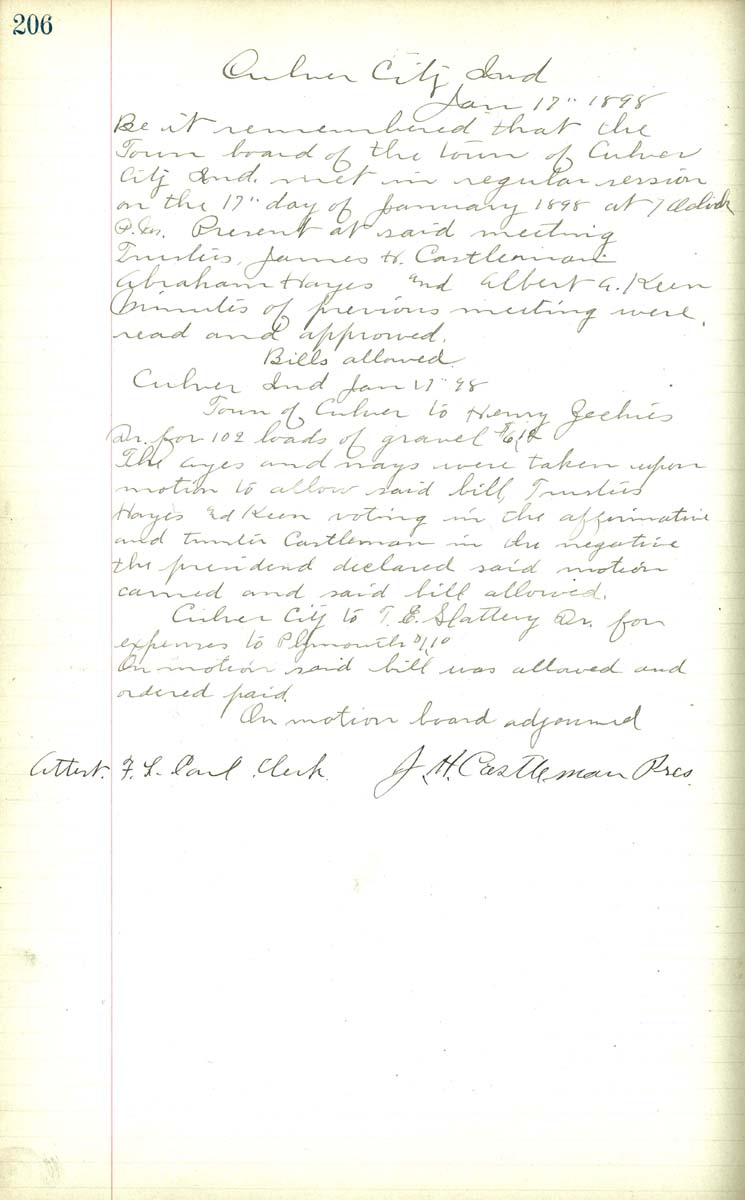 206
Culver City Ind
Jan 17" 1898
Be it remembered that the
Town board of the town of Culver
City Ind. met in regular session
on the 17" day of January 1898 at 7 oclock
P.M. Present at said meeting
Trustees, James H. Castleman
Abraham Hayes and Albert A. Keen
Minutes of previous meeting were
read and approved.
Bills allowed
Culver Ind Jan 17" 98
Town of Culver to Henry Zechies
Dr. for 102 loads of gravel
The ayes and nays were taken upon
motion to allow said bill, Trustees
Hayes and Keen voting in the affirmative
and trustee Castleman in the negative
the presidend declared said motion
carried and said bill allowed.
Culver City to T. E. Slattery Dr. for
expenses to Plymouth $1.10
On motion said bill was allowed and
ordered paid.
On motion board adjourned
Attest. F. L. Carl Clerk. J. H. Castleman Pres.